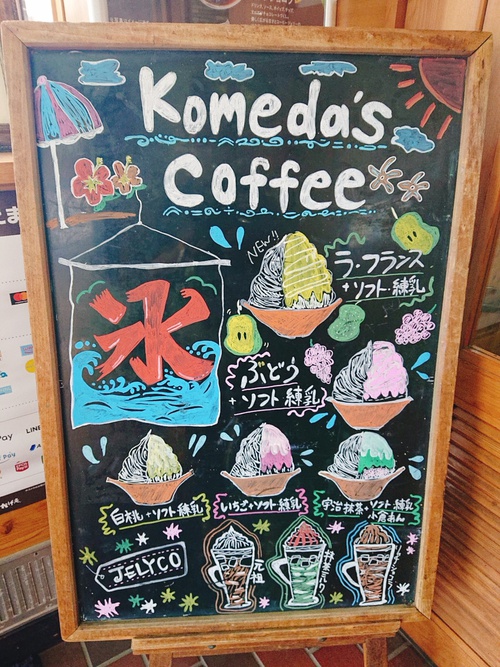 Komeda's
Coffee
氷
NEW!!
ラ・フランス
+ソフト・練乳
ぶどう
+ソフト 練乳
白桃+ソフト練乳
いちご+ソフト練乳
宇治抹茶+ソフト・練乳
小倉あん
JELYCO
元祖